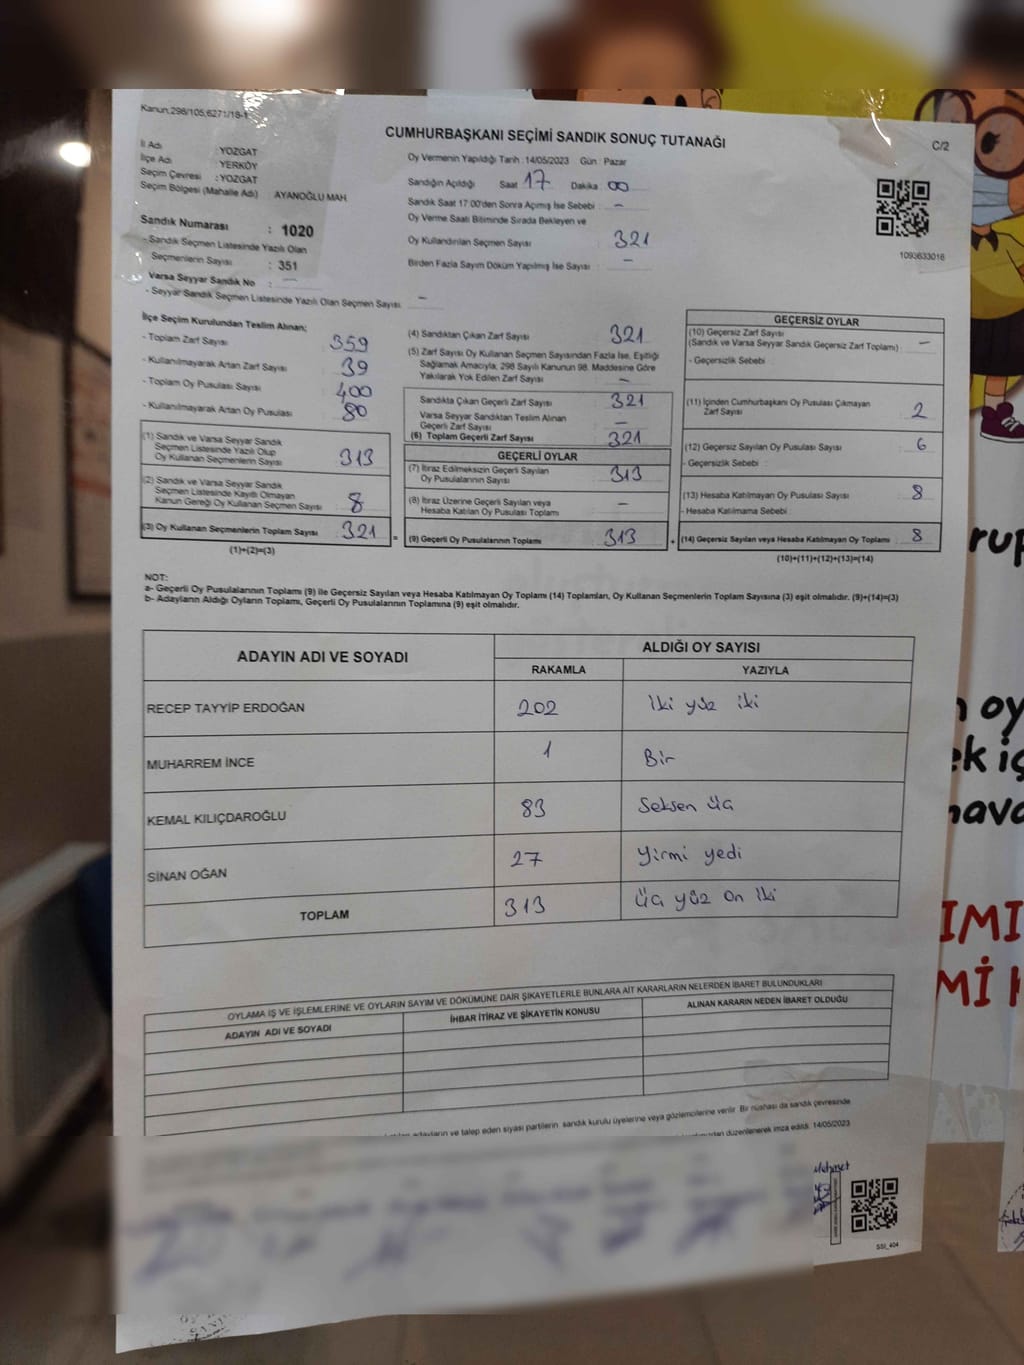 Kanun;298/105;6271/18-1
CUMHURBAŞKANI SEÇİMİ SANDIK SONUÇ TUTANAĞI
C/2
İl Adı : YOZGAT
İlçe Adı : YERKÖY
Seçim Çevresi : YOZGAT
Seçim Bölgesi (Mahalle Adı) : AYANOĞLU MAH
Sandık Numarası : 1020
- Sandık Seçmen Listesinde Yazılı Olan
Seçmenlerin Sayısı : 351
Varsa Seyyar Sandık No : —
- Seyyar Sandık Seçmen Listesinde Yazılı Olan Seçmen Sayısı : —
Oy Vermenin Yapıldığı Tarih : 14/05/2023 Gün : Pazar
Sandığın Açıldığı Saat 17 Dakika 00
Sandık Saat 17:00'den Sonra Açımış İse Sebebi : —
Oy Verme Saati Bitiminde Sırada Bekleyen ve
Oy Kullandırılan Seçmen Sayısı : 321
Birden Fazla Sayım Döküm Yapılmış İse Sayısı : —
1093633018
İlçe Seçim Kurulundan Teslim Alınan;
- Toplam Zarf Sayısı : 359
- Kullanılmayarak Artan Zarf Sayısı : 39
- Toplam Oy Pusulası Sayısı : 400
- Kullanılmayarak Artan Oy Pusulası : 80
(1) Sandık ve Varsa Seyyar Sandık
Seçmen Listesinde Yazılı Olup
Oy Kullanan Seçmenlerin Sayısı : 313
(2) Sandık ve Varsa Seyyar Sandık
Seçmen Listesinde Kayıtlı Olmayan
Kanun Gereği Oy Kullanan Seçmen Sayısı : 8
(3) Oy Kullanan Seçmenlerin Toplam Sayısı : 321 =
(1)+(2)=(3)
(4) Sandıktan Çıkan Zarf Sayısı : 321
(5) Zarf Sayısı Oy Kullanan Seçmen Sayısından Fazla İse, Eşitliği
Sağlamak Amacıyla; 298 Sayılı Kanunun 98. Maddesine Göre
Yakılarak Yok Edilen Zarf Sayısı : —
Sandıkta Çıkan Geçerli Zarf Sayısı : 321
Varsa Seyyar Sandıktan Teslim Alınan
Geçerli Zarf Sayısı : —
(6) Toplam Geçerli Zarf Sayısı : 321
GEÇERLİ OYLAR
(7) İtiraz Edilmeksizin Geçerli Sayılan
Oy Pusulalarının Sayısı : 313
(8) İtiraz Üzerine Geçerli Sayılan veya
Hesaba Katılan Oy Pusulası Toplamı : —
(9) Geçerli Oy Pusulalarının Toplamı : 313 +
GEÇERSİZ OYLAR
(10) Geçersiz Zarf Sayısı
(Sandık ve Varsa Seyyar Sandık Geçersiz Zarf Toplamı) : —
- Geçersizlik Sebebi :
(11) İçinden Cumhurbaşkanı Oy Pusulası Çıkmayan
Zarf Sayısı : 2
(12) Geçersiz Sayılan Oy Pusulası Sayısı : 6
- Geçersizlik Sebebi :
(13) Hesaba Katılmayan Oy Pusulası Sayısı : 8
- Hesaba Katılmama Sebebi :
(14) Geçersiz Sayılan veya Hesaba Katılmayan Oy Toplamı : 8
(10)+(11)+(12)+(13)=(14)
NOT:
a- Geçerli Oy Pusulalarının Toplamı (9) ile Geçersiz Sayılan veya Hesaba Katılmayan Oy Toplamı (14) Toplamları, Oy Kullanan Seçmenlerin Toplam Sayısına (3) eşit olmalıdır. (9)+(14)=(3)
b- Adayların Aldığı Oyların Toplamı, Geçerli Oy Pusulalarının Toplamına (9) eşit olmalıdır.
ADAYIN ADI VE SOYADI ALDIĞI OY SAYISI
RAKAMLA YAZIYLA
RECEP TAYYİP ERDOĞAN 202 iki yüz iki
MUHARREM İNCE 1 Bir
KEMAL KILIÇDAROĞLU 83 Seksen üç
SİNAN OĞAN 27 Yirmi yedi
TOPLAM 313 üç yüz on iki
OYLAMA İŞ VE İŞLEMLERİNE VE OYLARIN SAYIM VE DÖKÜMÜNE DAİR ŞİKAYETLERLE BUNLARA AİT KARARLARIN NELERDEN İBARET BULUNDUKLARI
ADAYIN ADI VE SOYADI İHBAR İTİRAZ VE ŞİKAYETİN KONUSU ALINAN KARARIN NEDEN İBARET OLDUĞU
adayların ve talep eden siyasi partilerin sandık kurulu üyelerine veya gözlemcilerine verilir. Bir nüshası da sandık çevresinde
düzenlenerek imza edildi. 14/05/2023
Mehmet
SSI_404
rup
oy
ek iç
hava
IMI
Mİ